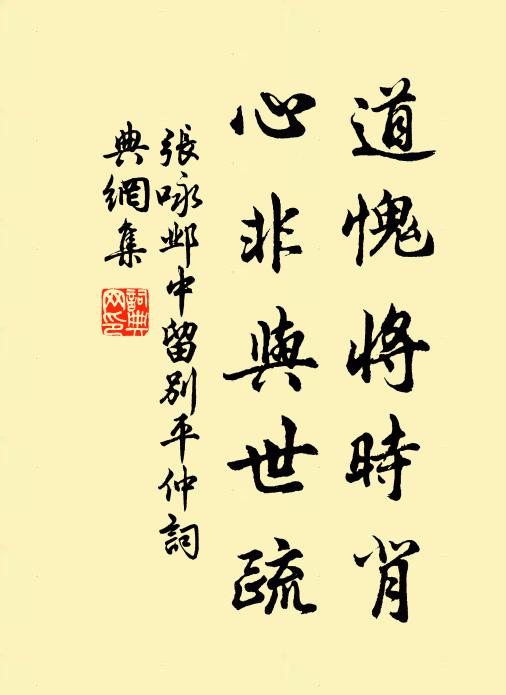 道愧將時背
心非與世疏
張咏邺中留别平仲詞
典網集
詞典
网印